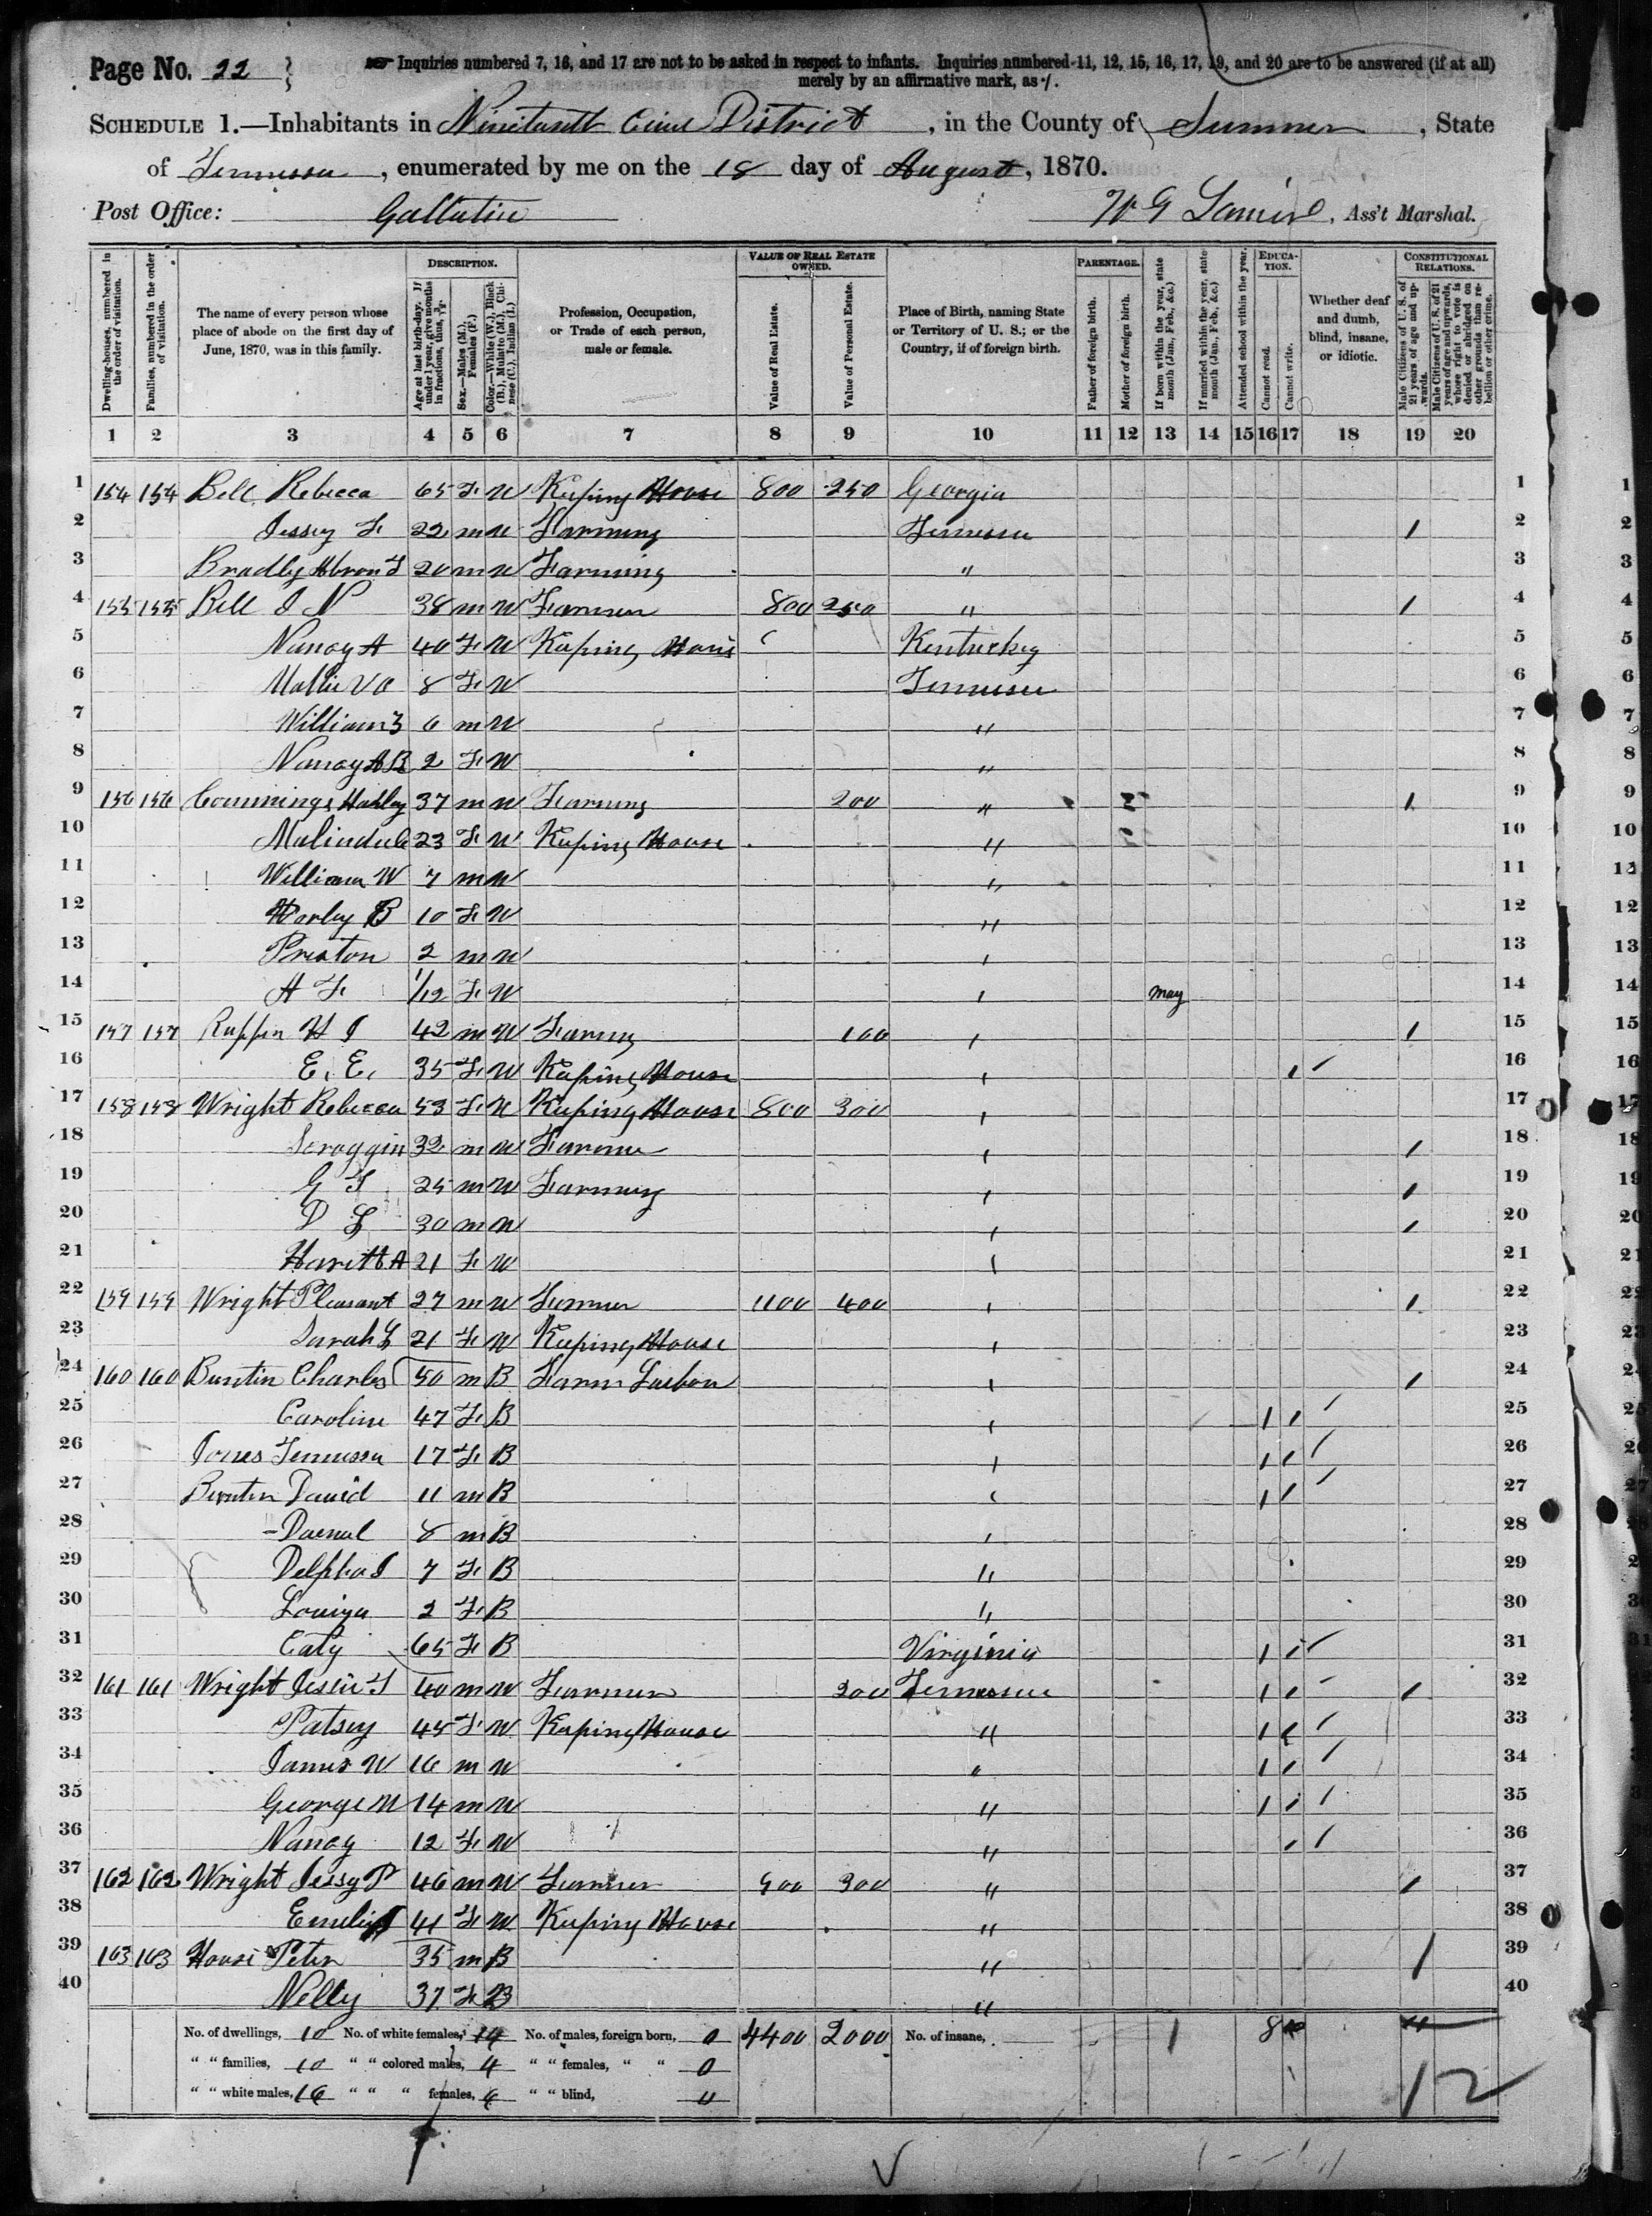 Page No. 22
Inquiries numbered 7, 16, and 17 are not to be asked in respect to infants. Inquiries numbered 11, 12, 15, 16, 17, 19, and 20 are to be answered (if at all)
merely by an affirmative mark, as /.
SCHEDULE 1.—Inhabitants in Ninetenth Civil District, in the County of Sumner, State
of Tennessee, enumerated by me on the 18 day of August, 1870.
Post Office: Gallatin
W G, Ass't Marshal.
Dwelling-houses, numbered in the order of visitation.
Families, numbered in the order of visitation.
The name of every person whose place of abode on the first day of June, 1870, was in this family.
DESCRIPTION.
Age at last birth-day. If under 1 year, give months in fractions, thus, 3/12.
Sex.—Males (M.), Females (F.)
Color.—White (W.), Black (B.), Mulatto (M.), Chinese (C.), Indian (I.)
Profession, Occupation, or Trade of each person, male or female.
VALUE OF REAL ESTATE OWNED.
Value of Real Estate.
Value of Personal Estate.
Place of Birth, naming State or Territory of U. S.; or the Country, if of foreign birth.
PARENTAGE.
Father of foreign birth.
Mother of foreign birth.
If born within the year, state month (Jan., Feb., &c.)
If married within the year, state month (Jan., Feb., &c.)
EDUCATION.
Attended school within the year.
Cannot read.
Cannot write.
Whether deaf and dumb, blind, insane, or idiotic.
CONSTITUTIONAL RELATIONS.
Male Citizens of U. S. of 21 years of age and upwards.
Male Citizens of U. S. of 21 years of age and upwards, whose right to vote is denied or abridged on other grounds than rebellion or other crime.
1 2 3 4 5 6 7 8 9 10 11 12 13 14 15 16 17 18 19 20
1 154 154 Bell Rebecca 65 F W Keeping House 800 250 Georgia 1
2 Jessey F 22 m W Farming Tennessee / 2
3 Bradley Abron 20 m W Farming " 3
4 155 155 Bell J N 38 m W Farmer 800 250 " / 4
5 Nancy A 40 F W Keeping House Kentucky 5
6 Mollie V 8 F W Tennessee 6
7 William 6 m W " 7
8 Nancy A B 2 F W " 8
9 156 156 Commings Hally 37 m W Farming 200 " / 9
10 Malinda 23 F W Keeping House " 10
11 William W 7 m W " 11
12 Harley B 10 F W " 12
13 Preston 2 m W " 13
14 A F 1/12 F W " may 14
15 157 157 H J 42 m W Farming 100 " / 15
16 E. E. 35 F W Keeping House " / 16
17 158 158 Wright Rebecca 53 F W Keeping House 800 300 " 17
18 Scroggin 32 m W Farmer " / 18
19 G T 25 m W Farming " / 19
20 D L 30 m W " / 20
21 Harett A 21 F W " 21
22 159 159 Wright Pleasant 27 m W Farmer 1100 400 " / 22
23 Sarah L 21 F W Keeping House " 23
24 160 160 Buntin Charles 50 m B Farm Laebor " / 24
25 Caroline 47 F B " / / 25
26 Jones Tennessee 17 F B " / / 26
27 Buntin David 11 m B " / / 27
28 8 m B " 28
29 Delpha J 7 F B " 29
30 Louiza 2 F B " 30
31 Caty 65 F B Virginia / / 31
32 161 161 Wright 40 m W Farmer 300 Tennessee / / / 32
33 Patsey 45 F W Keeping House " / / 33
34 James W 16 m W " / / 34
35 George W 14 m W " / / 35
36 Nancy 12 F W " / 36
37 162 162 Wright Jessy P 46 m W Farmer 900 300 " / 37
38 41 F W Keeping House " 38
39 163 163 House Peter 35 m B " / 39
40 Nelly 37 F B " 40
No. of dwellings, 10 No. of white females, 14 No. of males, foreign born, 0 4400 2000 No. of insane, 1 8
" " families, 10 " " colored males, 4 " " females, " " 0
" " white males, 16 " " " females, 6 " " blind, 0 12